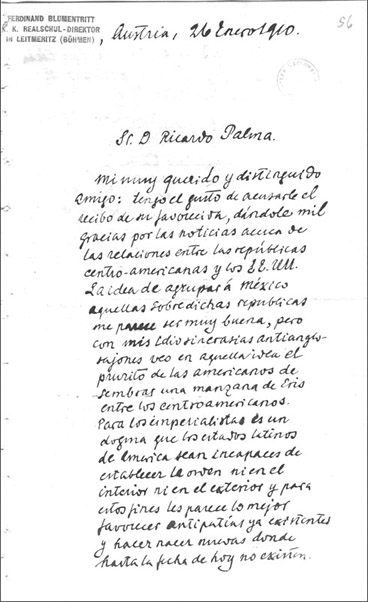 FERDINAND BLUMENTRITT
K. K. REALSCHUL-DIREKTOR
IN LEITMERITZ (BÖHMEN)
, Austria, 26 Enero 1910.
56
Sr. D Ricardo Palma.
Mi muy querido y distinguido
amigo: tengo el gusto de acusarle el
recibo de su favorecida, dándole mil
gracias por las noticias acerca de
las relaciones entre las repúblicas
centro-americanas y los EE. UU.
La idea de agrupar á México
aquellas sobredichas republicas
me parece ser muy buena, pero
con mis Idiosincrasias antianglo-
sajones veo en aquella idea el
prurito de las americanos de
sembrar una manzana de Eris
entre los centroamericanos.
Para los imperialistas es un
dogma que los estados latinos
de America sean incapaces de
establecer la orden ni en el
interior ni en el exterior y para
estos fines les parece lo mejor
favorecer antipatías ya existentes
y hacer nacer nuevas donde
hasta la fecha de hoy no existen.